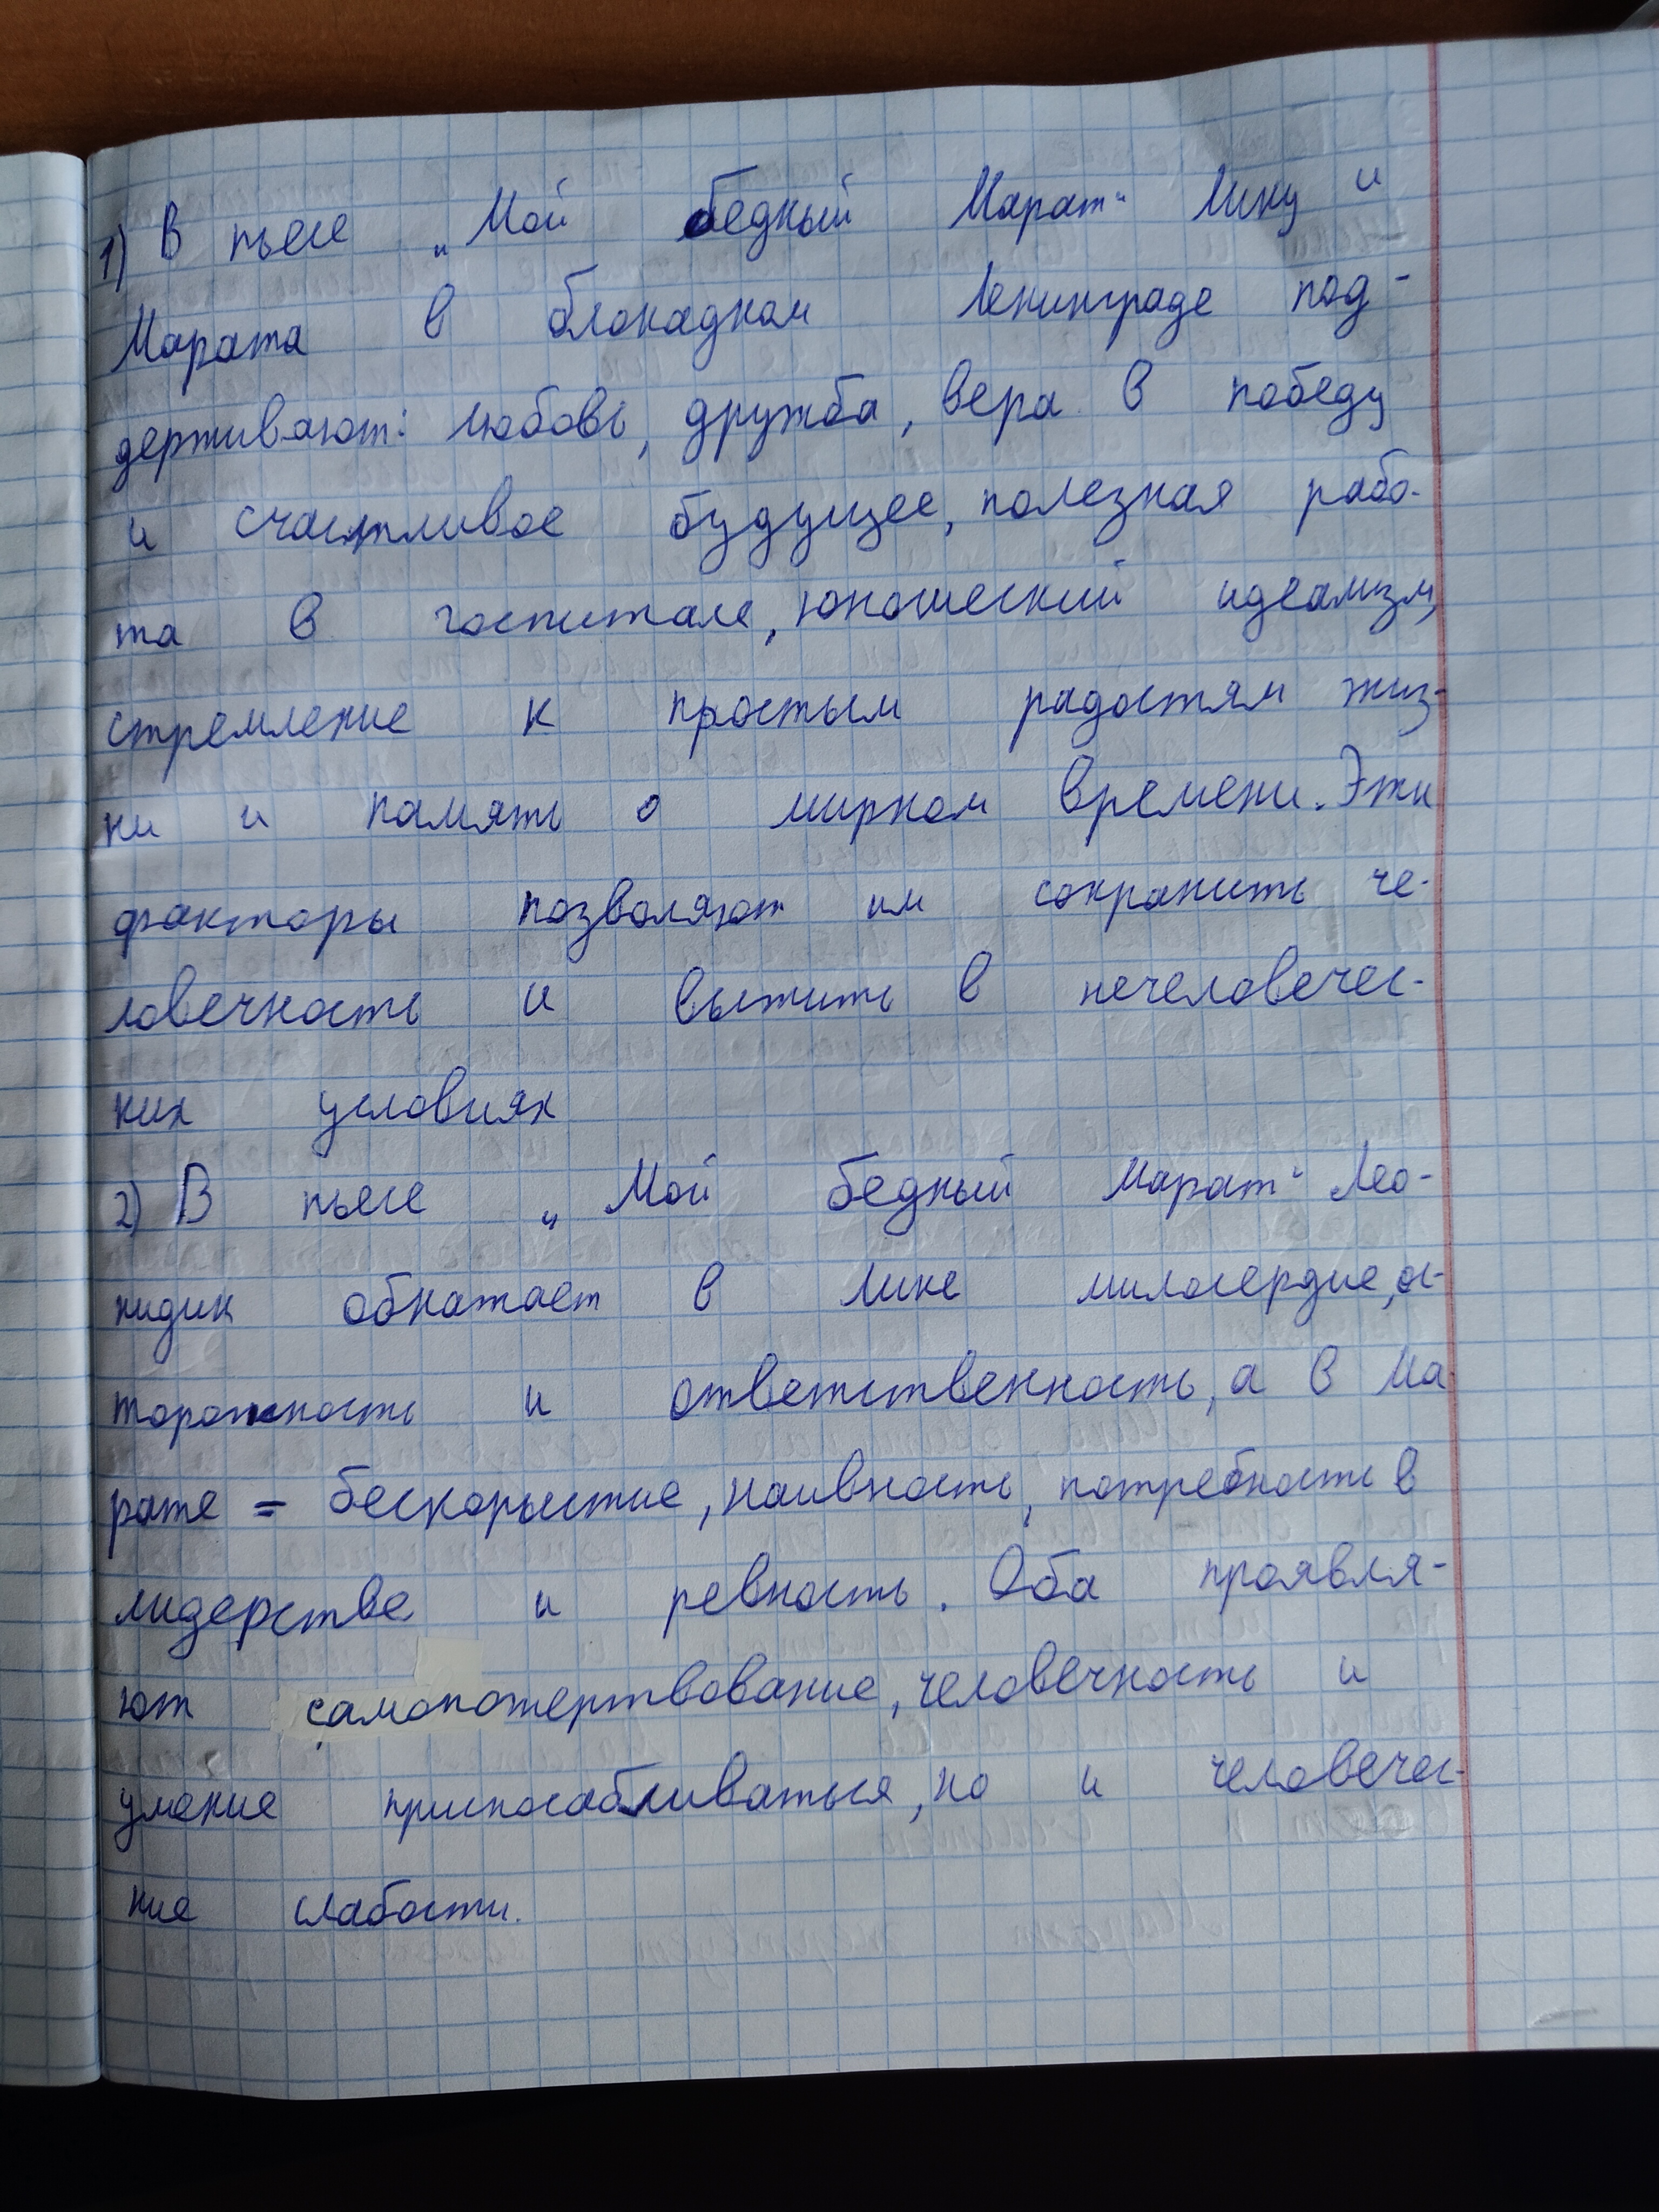 1) В пьесе „Мой бедный Марат“ Лику и
Марата в блокадном Ленинграде под-
держивают: любовь, дружба, вера в победу
и счастливое будущее, полезная рабо-
та в госпитале, юношеский идеализм,
стремление к простым радостям жиз-
ни и память о мирном времени. Эти
факторы позволяют им сохранить че-
ловечность и выжить в нечеловечес-
ких условиях
2) В пьесе „Мой бедный Марат“ Лео-
нидик обнажает в Лике милосердие, ос-
торожность и ответственность, а в Ма
рате = бескорыстие, наивность, потребность в
лидерстве и ревность. Оба проявля-
ют самопожертвование, человечность и
умение приспосабливаться, но и человечес-
кие слабости.